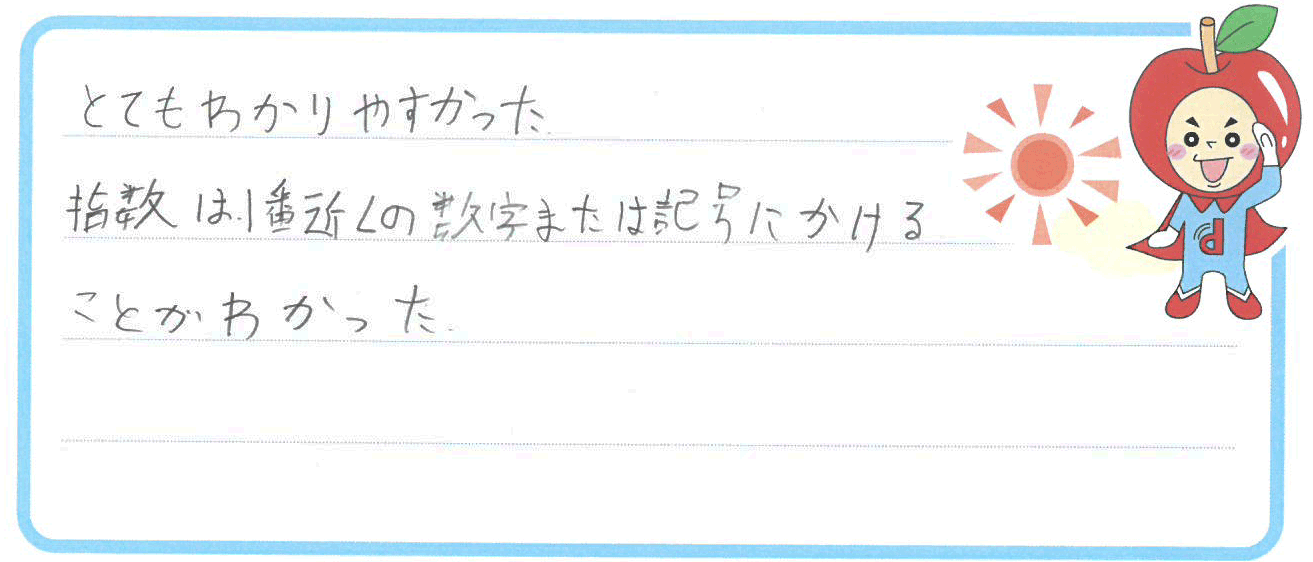 とてもわかりやすかった.
指数は、1番近くの数字または記号にかける
ことがわかった.